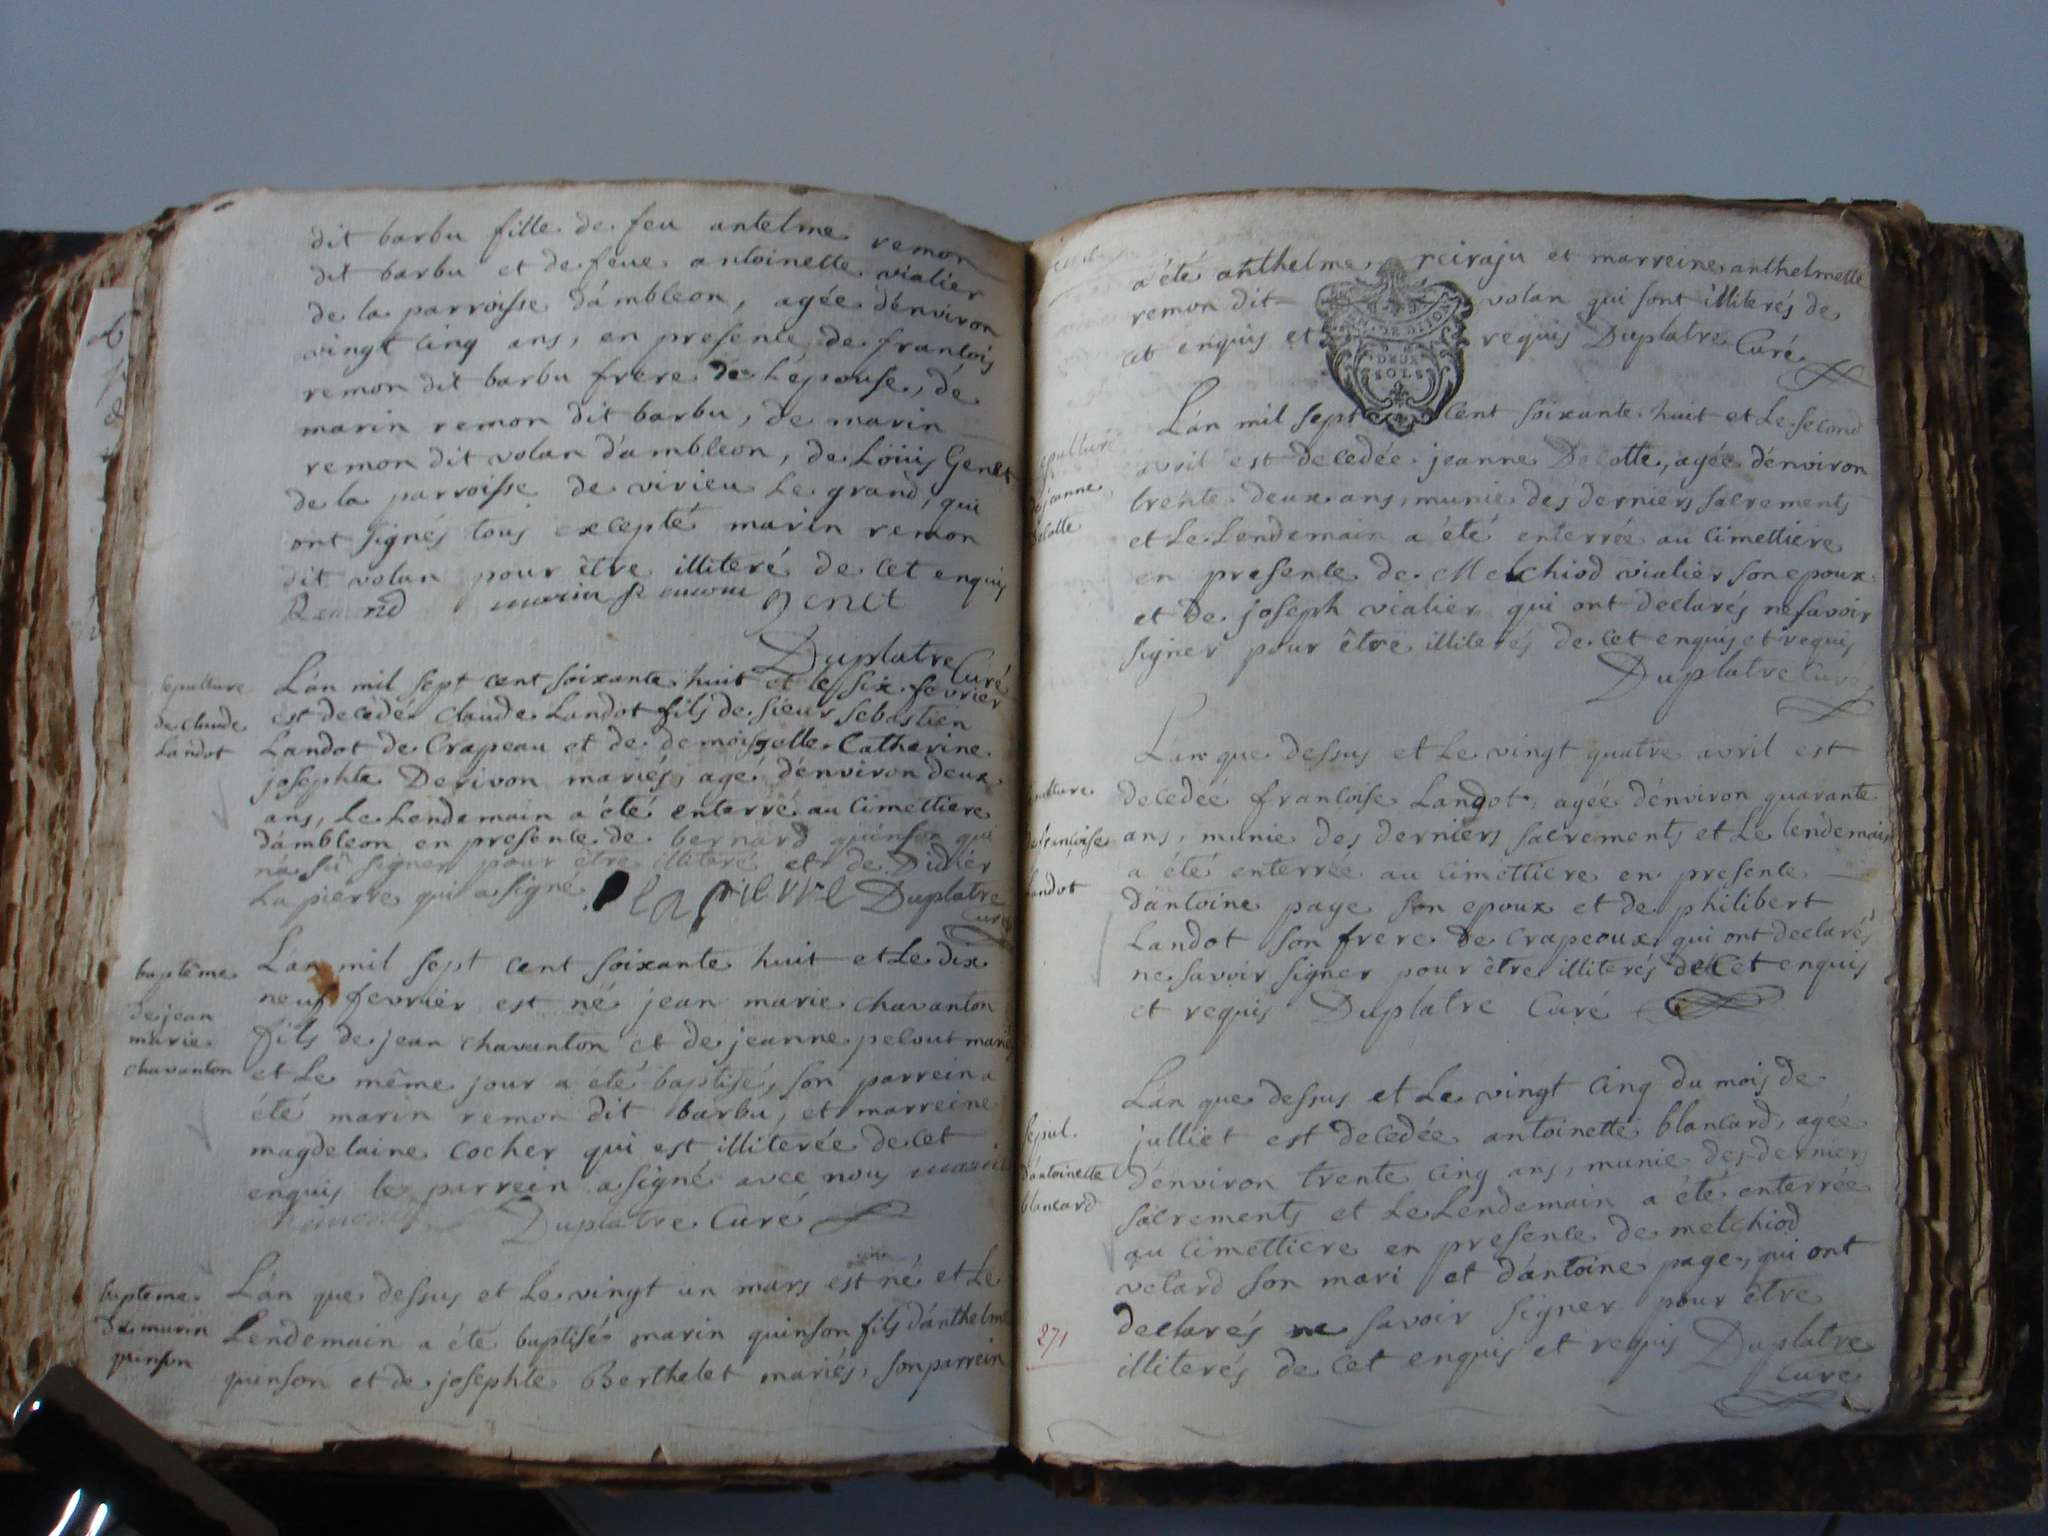 dit barbu fille de feu antelme remon
dit barbu et de feue antoinette vialier
de la parroisse d'ambleon, agée d'environ
vingt cinq ans, en presence de francois
remon dit barbu frere de l'epouse, de
marin remon dit barbu, de marin
remon dit volan d'ambleon, de Loüis Genet
de la parroisse de virieu le grand, qui
ont signés tous excepté marin remon
dit volan pour être illiteré de cet enquis
Remond marin genet
Duplatre Curé
sepulture
de claude
Landot
L'an mil sept cent soixante huit et le six fevrier
est decedé Claude Landot fils de sieur sebastien
Landot de Crapeau et de demoiselle Catherine
josephte Derivon mariés, agé d'environ deux
ans, Le Lendemain a été enterré au cimettiere
d'ambleon en presence de bernard quinson qui
n'a sû signer pour être illiteré et de Didier
Lapierre qui a signé lapierre Duplatre
Curé
baptême
de jean
marie
chavanton
L'an mil sept cent soixante huit et Le dix
neuf fevrier est né jean marie chavanton
fils de jean chavanton et de jeanne pelout mariés
et Le même jour a été baptisé, son parrein a
été marin remon dit barbu, et marreine
magdelaine cocher qui est illiterée de cet
enquis le parrein a signé avec nous marin
Duplatre Curé
bapteme
de marin
quinson
L'an que dessus et Le vingt un mars est né et Le
Lendemain a été baptisé marin quinson fils d'anthelme
quinson et de josephte Berthelet mariés, son parrein
a été anthelme reiraju et marreine anthelmette
remon dit volan qui sont illiterés de
cet enquis et requis Duplatre Curé
DEUX
SOLS
sepulture
de jeanne
Decotte
L'an mil sept cent soixante huit et Le second
avril est decedée jeanne Decotte, agée d'environ
trente deux ans, munie des derniers sacrements
et Le Lendemain a été enterrée au cimettiere
en presence de Melchiod vialier son epoux
et de joseph vialier qui ont declarés ne savoir
signer pour être illiterés de cet enquis et requis
Duplatre Curé
sepulture
de françoise
Landot
L'an que dessus et Le vingt quatre avril est
decedée francoise Landot, agée d'environ quarante
ans, munie des derniers sacrements et Le lendemain
a été enterrée au cimettiere en presence
d'antoine page son epoux et de philibert
Landot son frere de crapeoux qui ont declarés
ne savoir signer pour être illiterés de cet enquis
et requis Duplatre Curé
sepul.
d'antoinette
blancard
L'an que dessus et Le vingt cinq du mois de
julliet est decedée antoinette blancard, agée
d'environ trente cinq ans, munie des derniers
sacrements et Le Lendemain a été enterrée
au cimettiere en presence de melchiod
velard son mari et d'antoine page, qui ont
declarés ne savoir signer pour être
illiterés de cet enquis et requis Duplatre
Curé
271